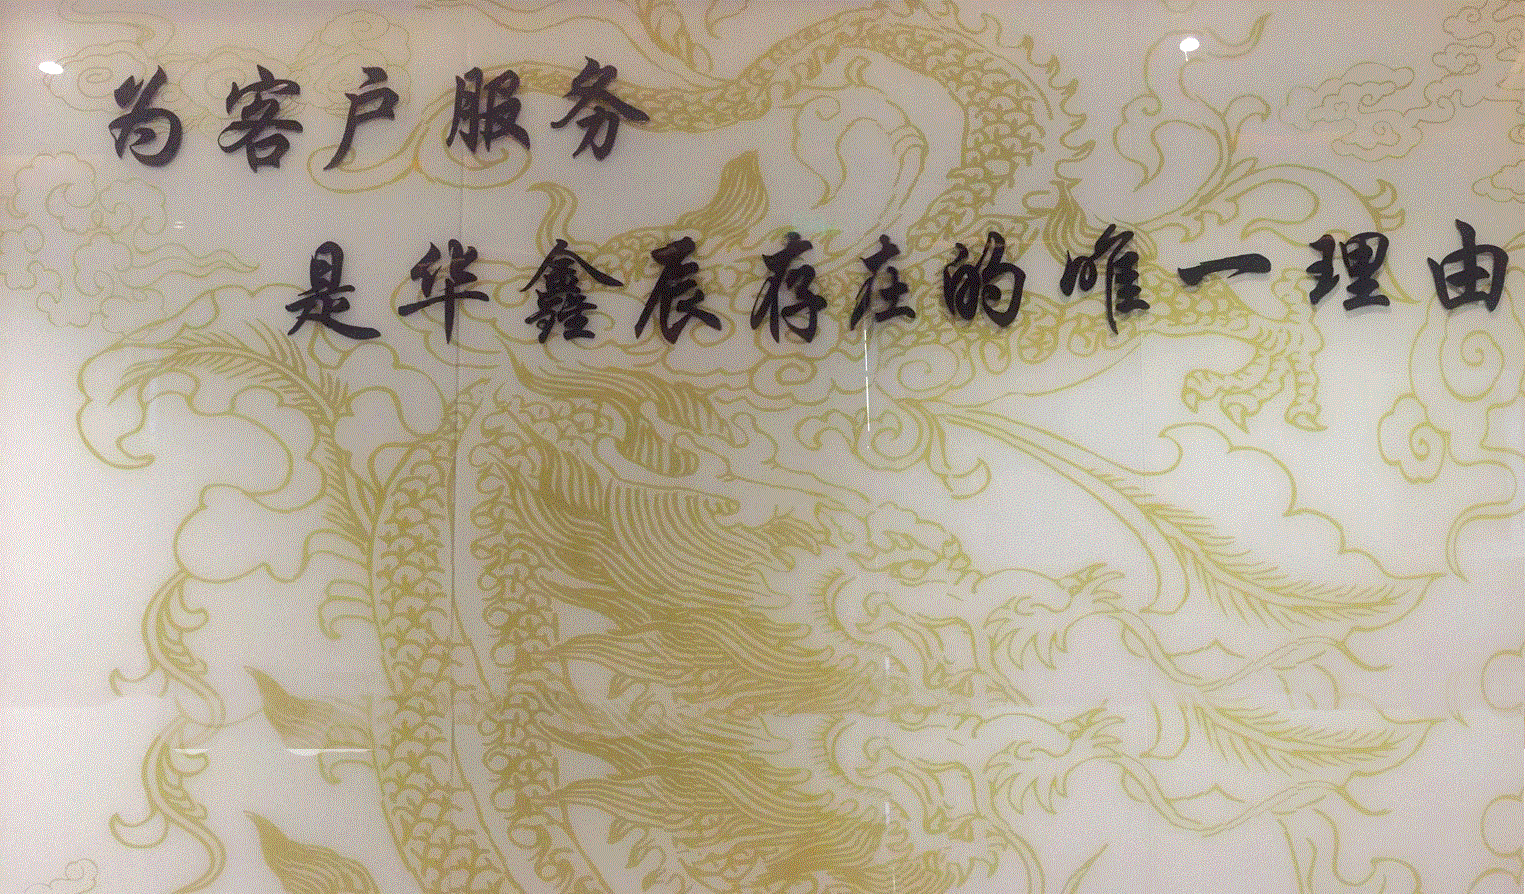 为客户服务
是华鑫辰存在的唯一理由